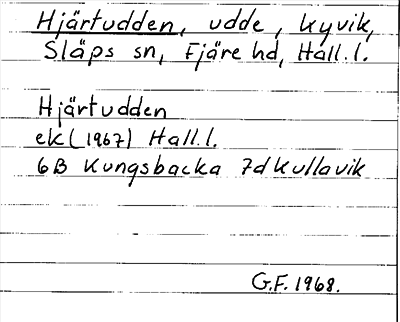 Hjärtudden, udde, Kyvik,
Släps sn, Fjäre hd, Hall.l.
Hjärtudden
ek (1967) Hall.l.
6B Kungsbacka 7d Kullavik
G.F. 1968.